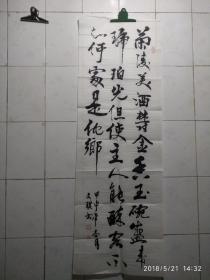 蘭陵美酒欝金香玉碗盛来
琥珀光但使主人能醉客不
知何處是他鄉
甲申年
2018/5/21 14:32